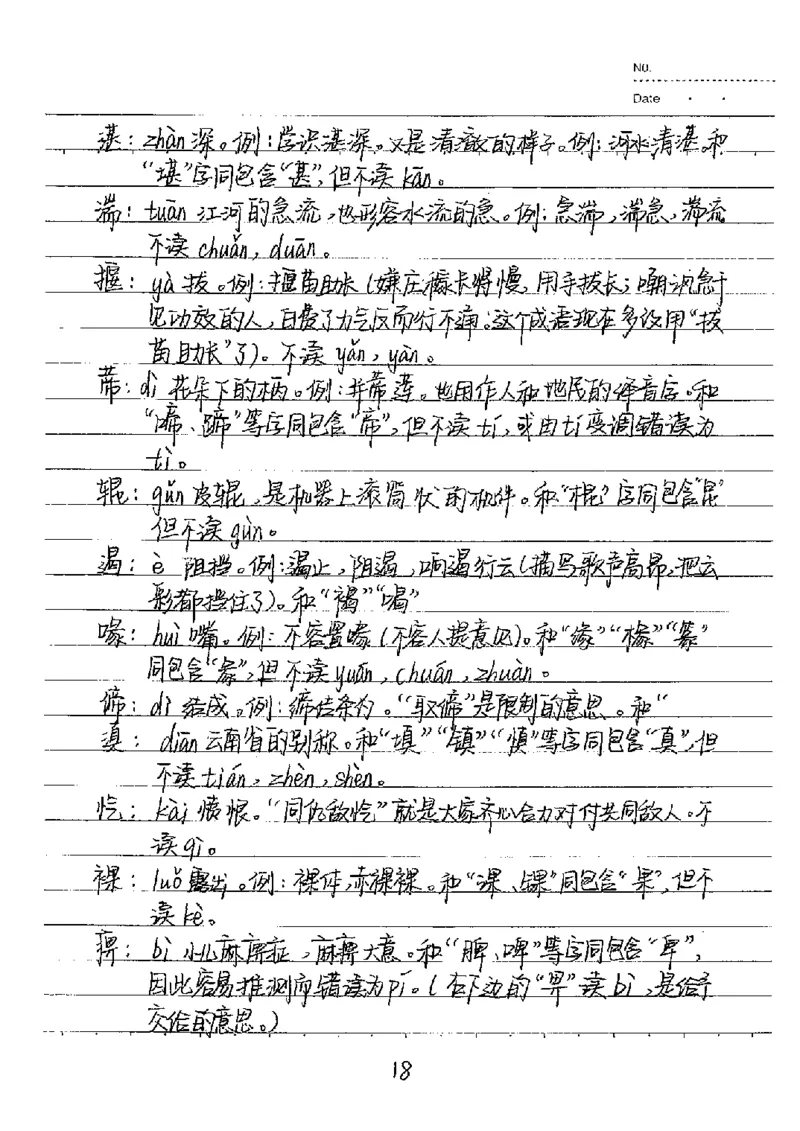 No.
Date
湛：zhàn 深。例：学识湛深。又是清澈的样子。例：河水清湛。和
“堪”字同包含“甚”，但不读kān。
湍：tuān 江河的急流，也形容水流的急。例：急湍，湍急，湍流
不读chuǎn，duān。
揠：yà 拔。例：揠苗助长（嫌庄稼长得慢，用手拔长；嘲讽急于
见功效的人，白费了力气反而行不通。这个成语现在多改用“拔
苗助长”了）。不读yǎn，yàn。
蒂：dì 花朵下的柄。例：并蒂莲。也用作人和地民的译音字。和
“啼、蹄”等字同包含“帝”，但不读tí，或由tí变调错读为
tì。
辊：gǔn 皮辊，是机器上滚筒状的机件。和“棍”字同包含“昆”
但不读gùn。
遏：è 阻挡。例：遏止，阻遏，响遏行云（描写歌声高昂，把云
彩都挡住了）。和“褐”“喝”
喙：huì 嘴。例：不容置喙（不容人提意见）。和“缘”“椽”“篆”
同包含“彖”，但不读yuán，chuán，zhuàn。
缔：dì 结成。例：缔结条约。“取缔”是限制的意思。和“
滇：diān 云南省的别称。和“填”“镇”“慎”等字同包含“真”，但
不读tián，zhèn，shèn。
忾：kài 愤恨。“同仇敌忾”就是大家齐心合力对付共同敌人。不
读qì。
裸：luǒ 露出。例：裸体，赤裸裸。和“课、锞”同包含“果”，但不
读kè。
痹：bì 小儿麻痹症，麻痹大意。和“脾、啤”等字同包含“卑”，
因此容易推测而错读为pí。（右下边的“畀”读bì，是给予
交给的意思。）
18